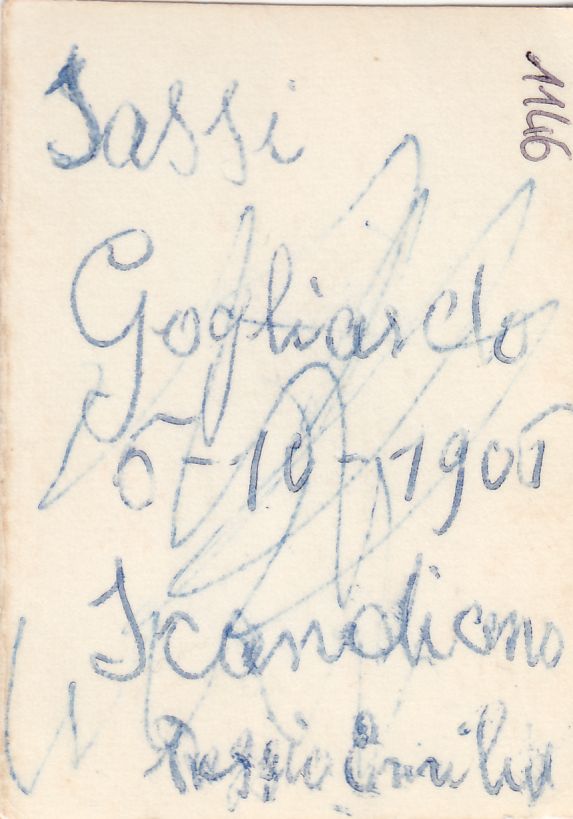 1146
Sassi
Gogliardo
5-10-1901
Scandiano
Reggio Emilia